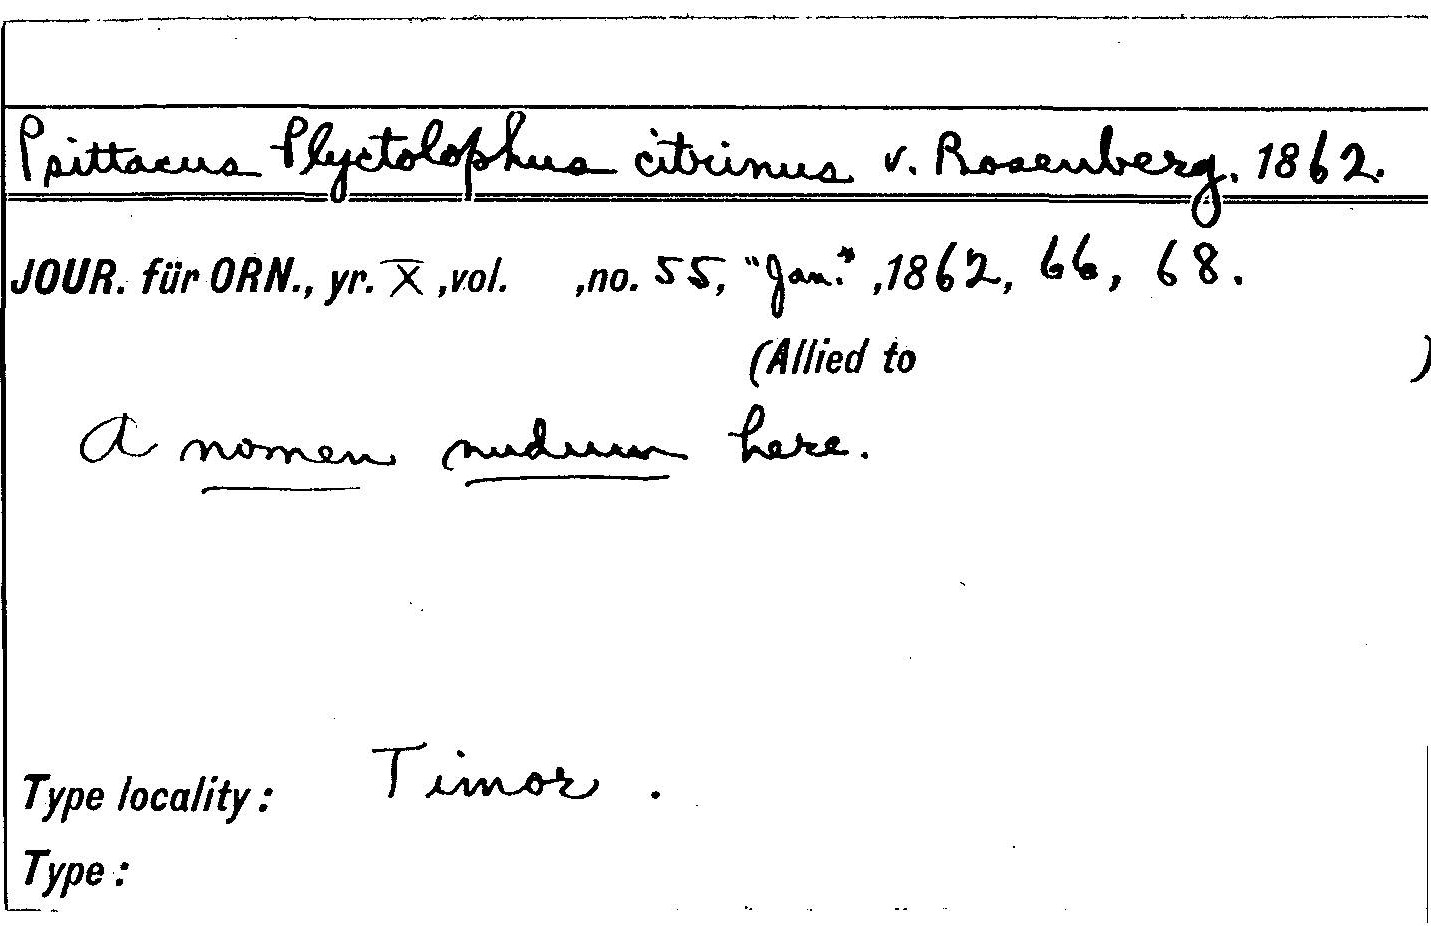 Psittacus Plyctolophus citrinus v. Rosenberg. 1862.
JOUR. für ORN., yr. X, vol. , no. 55, "Jan.", 1862, 66, 68.
(Allied to )
A nomen nudum here.
Type locality: Timor.
Type: